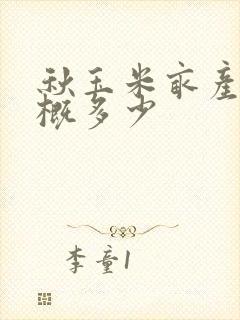 秋玉米亩产
概多少
李童1